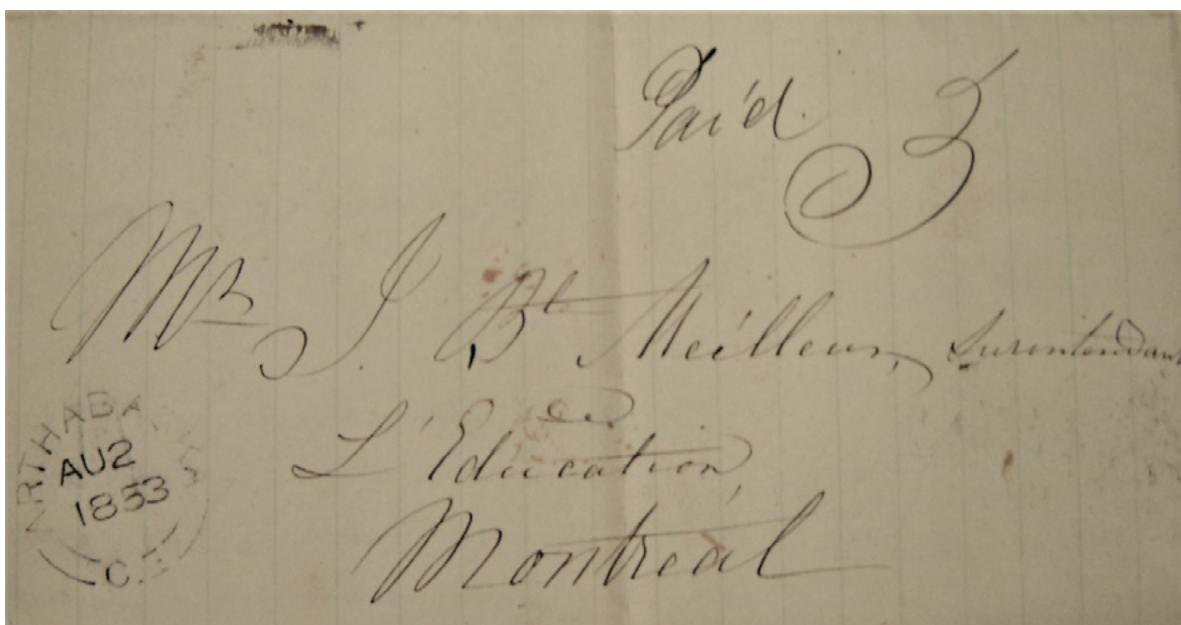 Paid 3
Mr J. Bte Meilleur, Surintendant
de
L'Education,
Montréal
ARTHABA
AU 2
1853
C.E